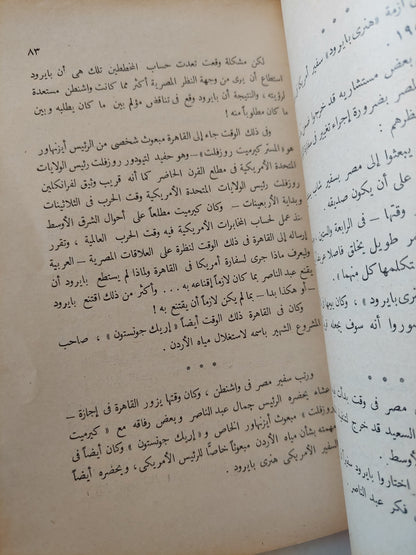 ٨٣
لكن مشكلة وقعت تعدت حساب المخططين تلك هى أن بايرود
استطاع أن يرى من وجهة النظر المصرية أكثر مما كانت واشنطن مستعدة
لرؤيته ، والنتيجة أن بايرود وقع فى تناقض مؤلم بين ما كان يطلبه وبين
ما كان مطلوباً منه !
وفى ذلك الوقت جاء إلى القاهرة مبعوث شخصى من الرئيس أيزنهاور
هو « المستر كيرميت روزفلت » – وهو حفيد لتيودور روزفلت رئيس الولايات
المتحدة الأمريكية فى مطلع القرن الحاضر كما أنه قريب وثيق لفرانكلين
روزفلت رئيس الولايات المتحدة الأمريكية وقت الحرب فى الثلاثينات
وبداية الأربعينات – وكان كيرميت مطلعاً على أحوال الشرق الأوسط
منذ عمل لحساب المخابرات الأمريكية فيه وقت الحرب العالمية ، وتقرر
إرساله إلى القاهرة ذلك الوقت لنظرة على العلاقات المصرية – العربية
وليعرف ماذا جرى لسفارة أمريكا فى القاهرة ولماذا لم يستطع بايرود أن
يقنع عبد الناصر بما كان لازماً إقناعه به . . . وأكثر من ذلك اقتنع بايرود
– أو هكذا بدا – بما لم يكن لازماً أن يقتنع به !
وكان فى القاهرة ذلك الوقت أيضاً « إريك جونستون » ، صاحب
المشروع الشهير باسمه لاستغلال مياه الأردن .
* * *
ورتب سفير مصر فى واشنطن ، وكان وقتها يزور القاهرة فى إجازة –
عشاء يحضره الرئيس جمال عبد الناصر وبعض رفاقه مع « كيرميت
روزفلت » مبعوث أيزنهاور الخاص و « إريك جونستون » وكان أيضاً فى
مهمته بشأن مياه الأردن مبعوثاً خاصاً للرئيس الأمريكى ، ويحضره أيضاً
السفير الأمريكى هنرى بايرود .
أزمة « هنرى بايرود » سفير أمريكا
بعض مستشاريه قد خرجوا
لمصر بضرورة إجراء تغيير فى
نظرهم :
يبعثوا إلى مصر بسفير شاب
على أن يكون صديقه .
وقتها – فى الرابعة والستين
طويل يخلق فاصلا
تكلمها كل منهما » .
بايرود » ، وكان
أنه سوف يجعله
* * *
مصر فى وقت بدأت
السعيد قد خرج
الأوسط .
اختاروا بايرود سفيراً
فكر عبد الناصر .